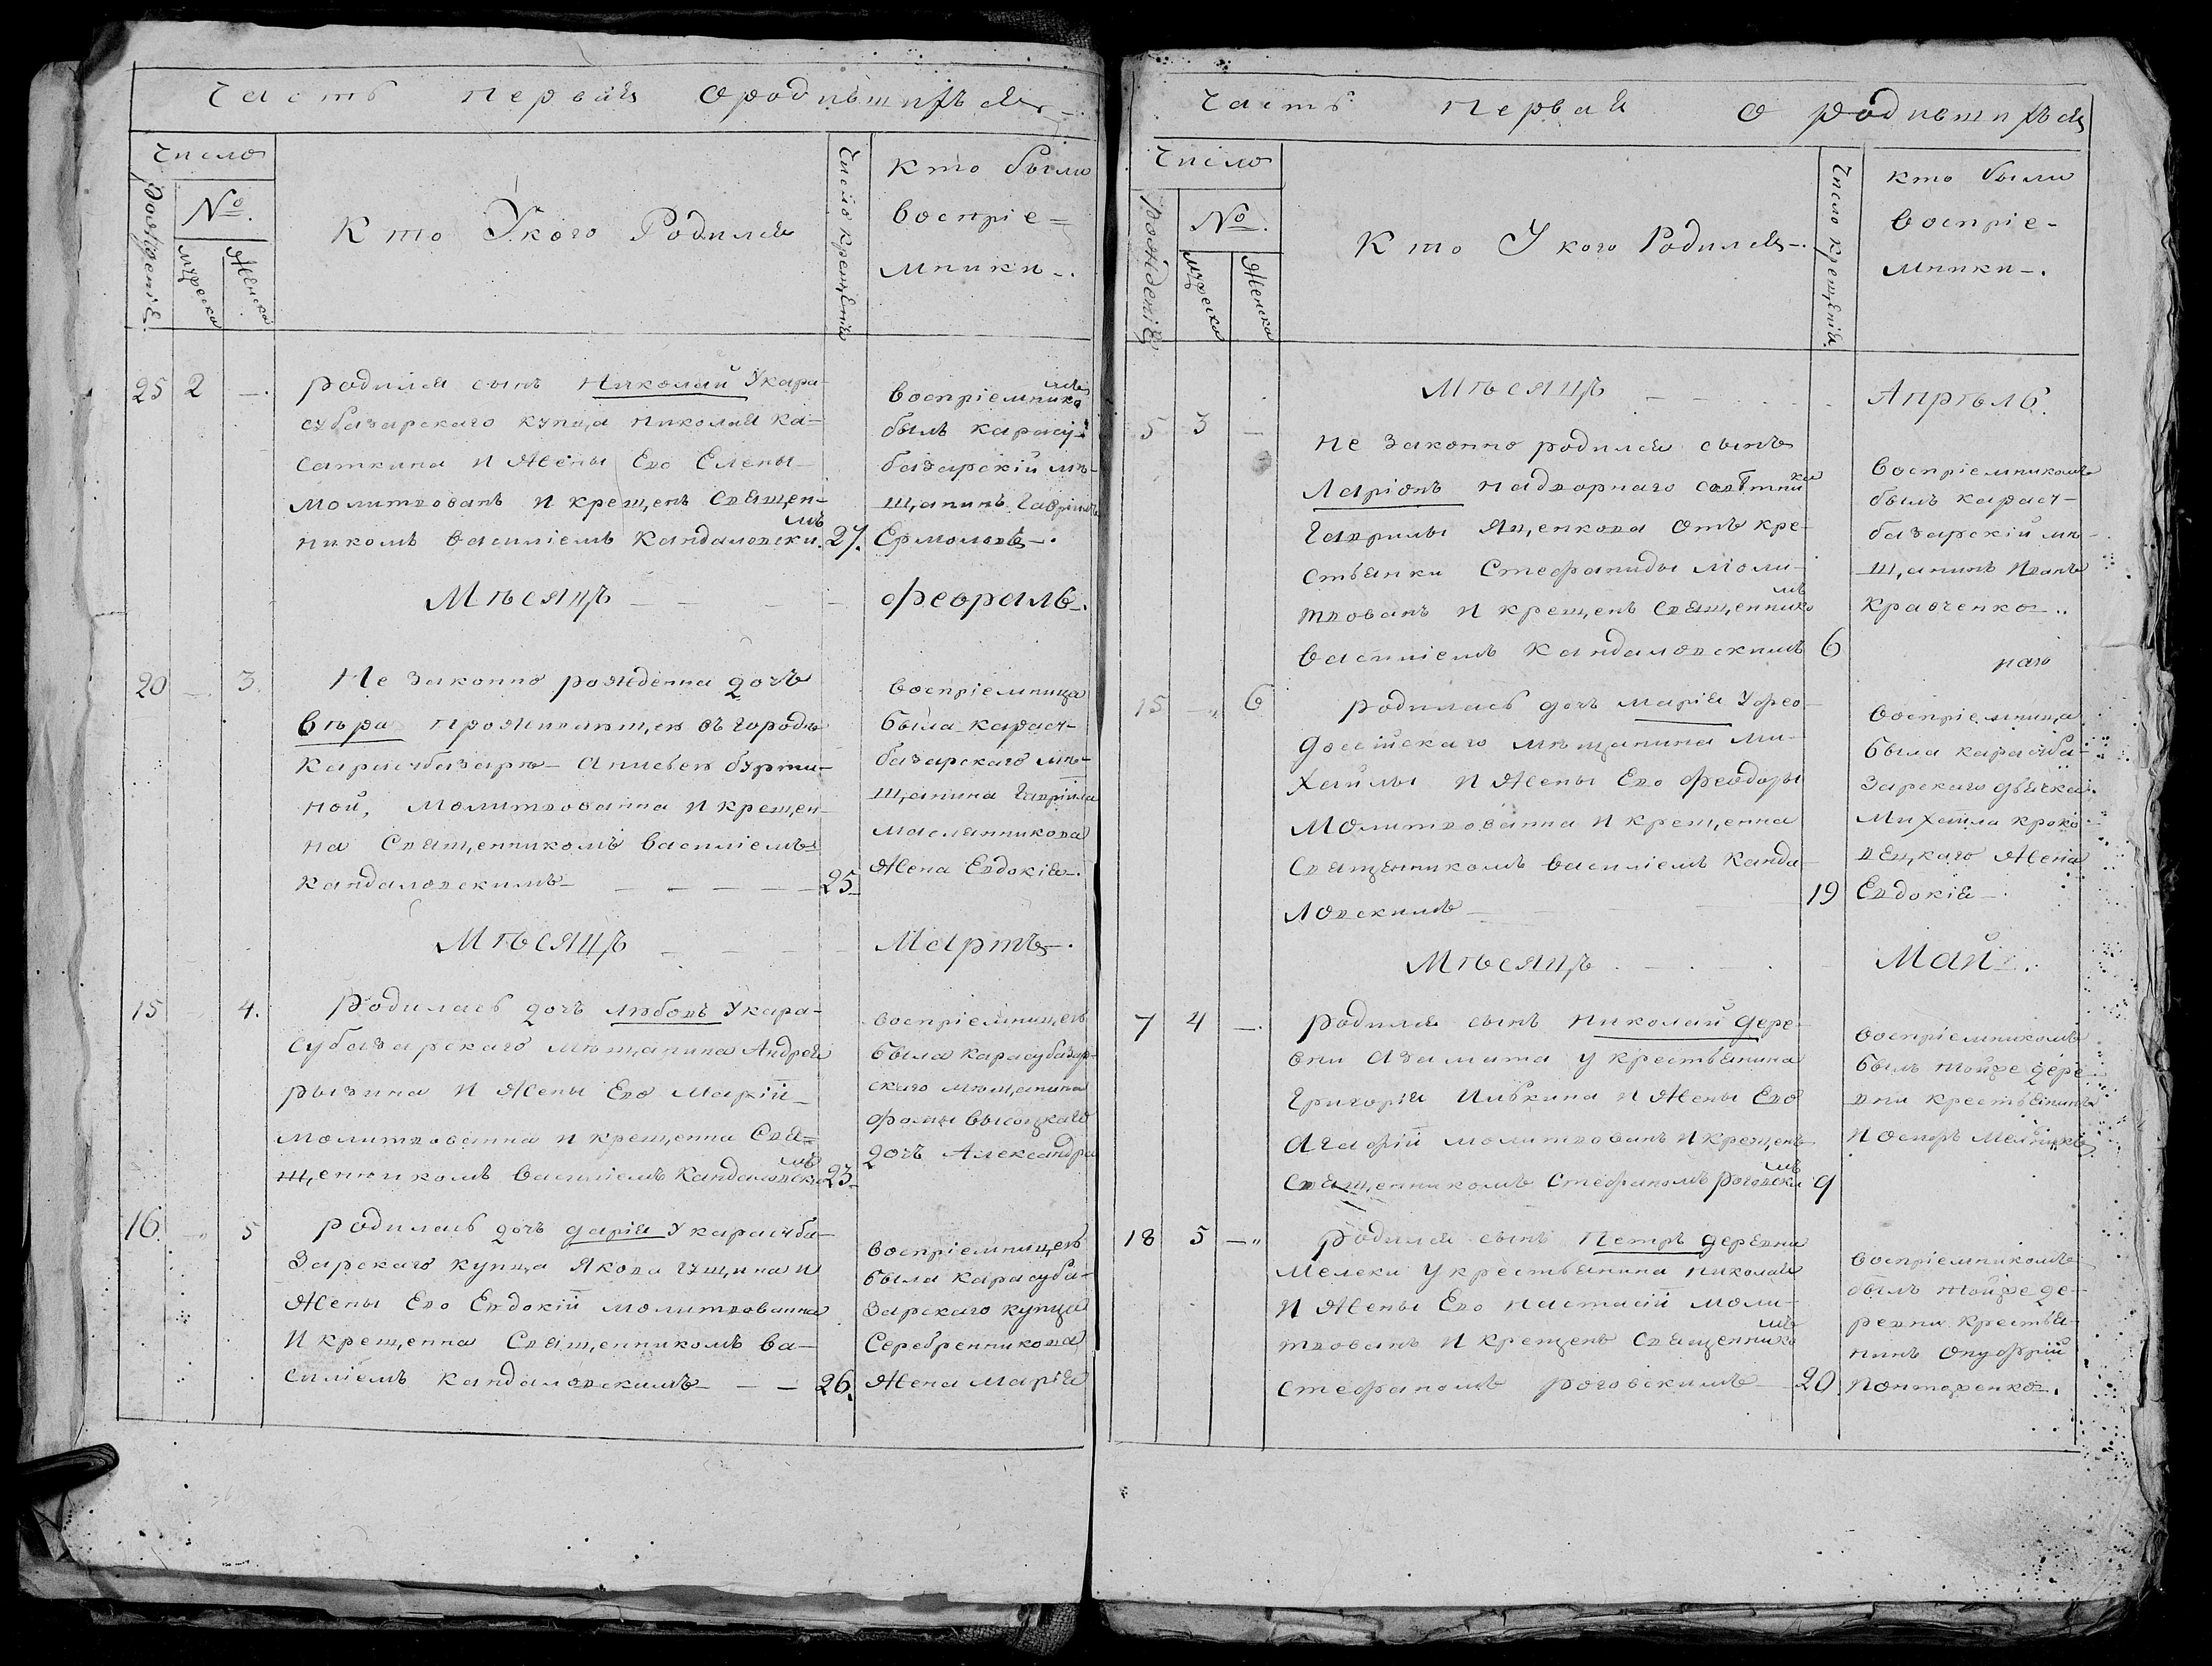 Часть первая ородившихъся
Число
Рождение.
№
мужеска
Женска
Кто Укого Родился
Число крещения
кто были
воспрiе=
мники.
25 2 —
родился сынъ Николай Укара-
субазарскаго купца николая Ка-
саткина и жены Его Елены
молитвованъ и крещенъ Священ-
никомъ василiемъ Кандаловскимъ 27.
воспрiемникомъ
былъ карасу-
базарскiй мѣ-
щанинъ Гаврiилъ
Ермоловъ.
Мѣсяцъ — — — — февраль.
20 — 3.
Не законно рожденна дочъ
вѣра проживающея въ городѣ
Карасубазарѣ
ной, молитвованна и крещен-
на Священникомъ василiемъ
кандаловскимъ — — — — — 25
воспрiемница
была карасу-
базарскаго мѣ-
щанина Гаврiила
масленникова
жена Евдокiя.
Мѣсяцъ — — — — Мартъ.
15 4.
Родилась дочъ любовь Укара-
субазарскаго мѣщанина Андрея
рызина и жены Его Марiи
молитвованна и крещенна Свя-
щенникомъ василiемъ Кандаловскимъ 23
воспрiемницею
была карасубазар-
скаго мѣщанина
фомы высоцкаго
дочъ Александра
16 — 5
родилась дочъ дарiя У карасуба-
зарскаго купца Якова гущина и
жены Его Евдокiи молитвованна
и крещенна Священникомъ ва-
силiемъ кандаловскимъ — — 26.
воспрiемницею
была карасуба-
зарскаго купца
Серебренникова
жена марiя
Часть первая о родившихъся
Число
рождения
№
мужеска
Женска
Кто У кого Родился.
Число крещения.
кто были
воспрiе-
мники.
Мѣсяцъ — — — — Апрѣль.
5 3 —
не законно родился сынъ
Ларiонъ надворнаго совѣтника
гаврилы Яценкова отъ кре-
стьянки Стефаниды моли-
твованъ и крещенъ Священникомъ
василiемъ кандаловскимъ 6
воспрiемникомъ
былъ карасу-
базарскiй мѣ-
щанинъ Иванъ
кравченко.
15 — 6
родилась дочъ марiя Уфео-
досiйскаго мѣщанина ми-
хайлы и жены Его феодоры
молитвованна и крещенна
Священникомъ василiемъ Канда-
ловскимъ — 19
воспрiемница
была карасуба-
зарскаго дьячка
михаила
жена
Евдокiя
Мѣсяцъ — — — — Май.
7 4 —
родился сынъ николай дере-
вни Азамата у крестьянина
григорiя илькина и жены Его
агафiи молитвованъ и крещенъ
Священникомъ Стефаномъ роговскимъ 9
воспрiемникомъ
былъ тойже дере-
вни крестьянинъ
иосифъ
18 5 —
родился сынъ петръ деревни
мелеки У крестьянина николая
и жены Его настасiи моли-
твованъ и крещенъ Священникомъ
стефаномъ роговскимъ — 20
воспрiемникомъ
былъ тойже де-
ревни крестья-
нинъ онуфрiй